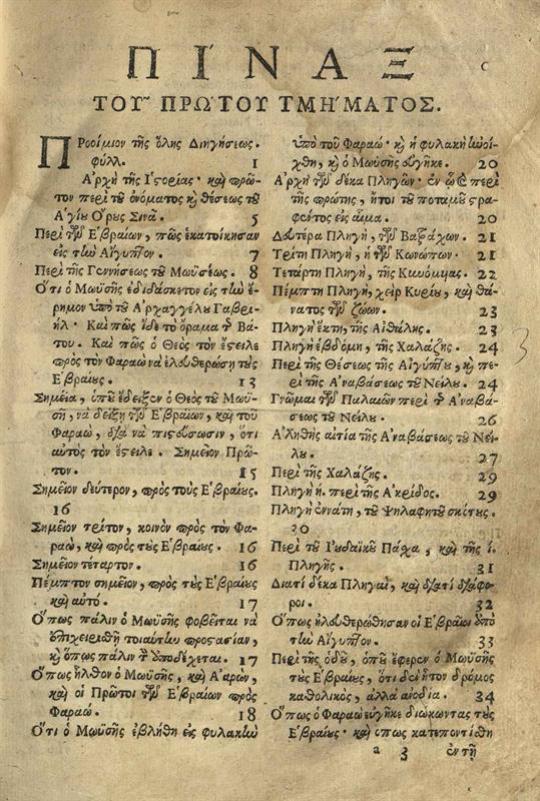 ΠΊΝΑΞ
ΤΟΥ͂ ΠΡΏΤΟΥ ΤΜΉΜΑΤΟΣ.
ΠΡοοίμιον τῆς ὅλης Διηγήσεως.
φύλλ. 1
Α᾿ρχὴ τῆς Ι῾ςορίας · καὶ πρῶ-
τον περὶ τοῦ ὀνόματος κὶ θέσεως τοῦ
Α῾γίου Ο῎ρους Σινᾶ. 5
Περὶ τῶν Ε῾βραίων, πῶς ἐκατοίκησαν
εἰς τὴν Αἴγυπτον. 7
Περὶ τῆς Γεννήσεως τοῦ Μωϋσέως. 8
Ο῞τι ὁ Μωϋσῆς ἐδιδάσκετον εἰς τὴν ἔ-
ρημον ὑπὸ τοῦ Α᾿ρχαγγέλου Γαβρι-
ήλ · Καὶ πῶς ἶδε τὸ ὅραμα τ͂ Βά-
του. Καὶ πῶς ὁ Θεὸς τὸν ἔςειλε
πρὸς τὸν Φαραὼ νὰ ἐλευθερώσῃ τοὺς
Ε῾βραίους. 13
Σημεῖα, ὁποῦ ἔδειξεν ὁ Θεὸς τοῦ Μωϋ-
σῆ, νὰ δείξῃ τῶν Ε῾βραίων, καὶ τοῦ
Φαραὼ, διὰ νὰ πιςεύσωσιν, ὅτι
αὐτὸς τὸν ἔςειλε. Σημεῖον Πρῶ-
τον. 15
Σημεῖον δεύτερον, πρὸς τοὺς Ε῾βραίους.
16
Σημεῖον τρίτον, κοινὸν πρὸς τὸν Φα-
ραὼ, καὶ πρὸς τοὺς Ε῾βραίους. 16
Σημεῖον τέταρτον. 16
Πέμπτον σημεῖον, πρὸς τοὺς Ε῾βραίους
καὶ αυτό. 17
Ο῞πως πάλιν ὁ Μωϋσῆς φοβεῖται νὰ
ἐπιχειριθῇ τοιαύτην προςασίαν,
κὶ ὅπως πάλιν τ̀ ὑποδέχεται. 17
Ο῞πως ἦλθον ὁ Μωϋσῆς, καὶ Α᾿αρὼν,
καὶ οἱ Πρῶτοι τῶν Ε῾βραίων πρὸς
Φαραώ. 18
Ο῞τι ὁ Μωϋσῆς ἐβλήθη εἰς φυλακὴν
ὑπὸ τοῦ Φαραώ · κὶ ἡ φυλακὴ ἠνοί-
χθη, κὶ ὁ Μωϋσῆς εὐγῆκε. 20
Α᾿ρχὴ τῶν δέκα Πληγῶν · ἐν ᾧ περὶ
τῆς πρώτης, ἤτοι τοῦ ποταμοῦ ςρα-
φέντος εἰς αἷμα. 20
Δευτέρα Πληγὴ, τῶν Βατράχων. 21
Τρίτη Πληγὴ, ἡ τῶν Κωνώπων · 21
Τετάρτη Πληγὴ, τῆς Κυνομύιας. 22
Πέμπτη Πληγὴ, χεὶρ Κυρίου, καὶ θά-
νατος τῶν ζώων. 23
Πληγὴ ἕκτη, τῆς Αἰθάλης. 23
Πληγὴ ἑβδόμη, τῆς Χαλάζης. 24
Περὶ τῆς Θέσεως τῆς Αἰγύπτου, κὶ πε-
ρὶ τῆς Α᾿ναβάσεως τοῦ Νείλου. 24
Γνῶμαι τῶν Παλαιῶν περὶ τ̃ Α᾿ναβά-
σεως τοῦ Νείλου. 26
Α᾿ληθὴς αἰτία τῆς Α᾿ναβάσεως τοῦ Νεί-
λου. 27
Περὶ τῆς Χαλάζης. 29
Πληγὴ ή. περὶ τῆς Α᾿κρίδος. 29
Πληγὴ ἐννάτη, τοῦ Ψηλαφητοῦ σκότους.
30
Περὶ τοῦ Ι᾿υδαϊκοῦ Πάσχα, καὶ τῆς ί.
Πληγῆς. 31
Διατὶ δέκα Πληγαὶ, καὶ διατὶ διάφο-
ροι. 32
Ο῞πως ἠλευθερώθησαν οἱ Ε῾βραῖοι ἀπὸ
τὴν Αἴγυπτον. 33
Περὶ τῆς ὁδοῦ, ὁποῦ ἔφερεν ὁ Μωϋσῆς
τοὺς Ε῾βραίους, ὅτι δὲν ἦτον δρόμος
καθολικὸς, ἀλλὰ ἀνοδία. 34
Ο῞πως ὁ Φαραὼ εὐγῆκε διώκωντας τοὺς
Ε῾βραίους · καὶ ὅπως κατεποντίσθη
a 3 ἐν τῇ
3